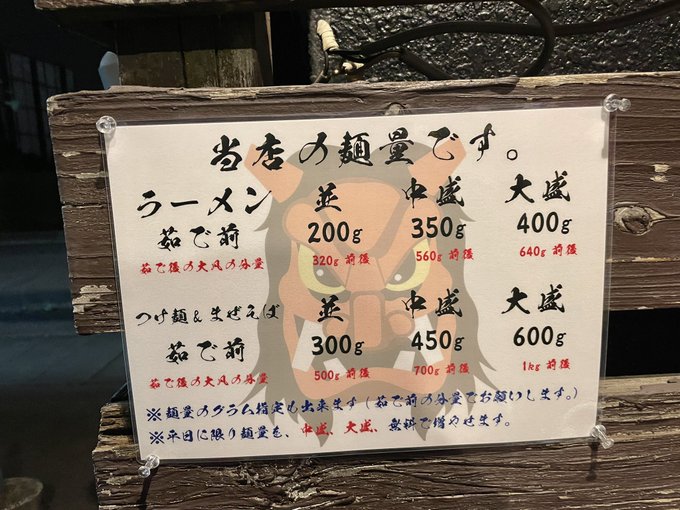 当店の麺量です。
ラーメン 並 中盛 大盛
茹で前 200g 350g 400g
茹で後の大凡の分量 320g 前後 560g 前後 640g 前後
つけ麺&まぜそば 並 中盛 大盛
茹で前 300g 450g 600g
茹で後の大凡の分量 500g 前後 700g 前後 1kg 前後
※麺量のグラム指定も出来ます(茹で前の分量でお願いします。)
※平日に限り麺量を、中盛、大盛、無料で増やせます。